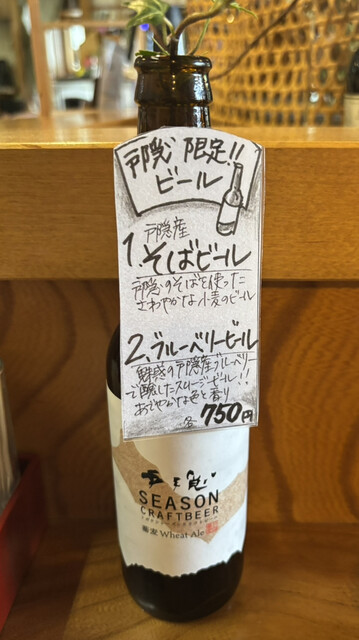 戸隠 限定!!
ビール
戸隠産
1. そばビール
戸隠のそばを使った
さわやかな小麦のビール
2. ブルーベリービール
魅惑の戸隠産ブルーベリー
で醸したスムージービール!!
あでやかな色と香り
各 750円
SEASON
CRAFTBEER
蕎麦 Wheat Ale